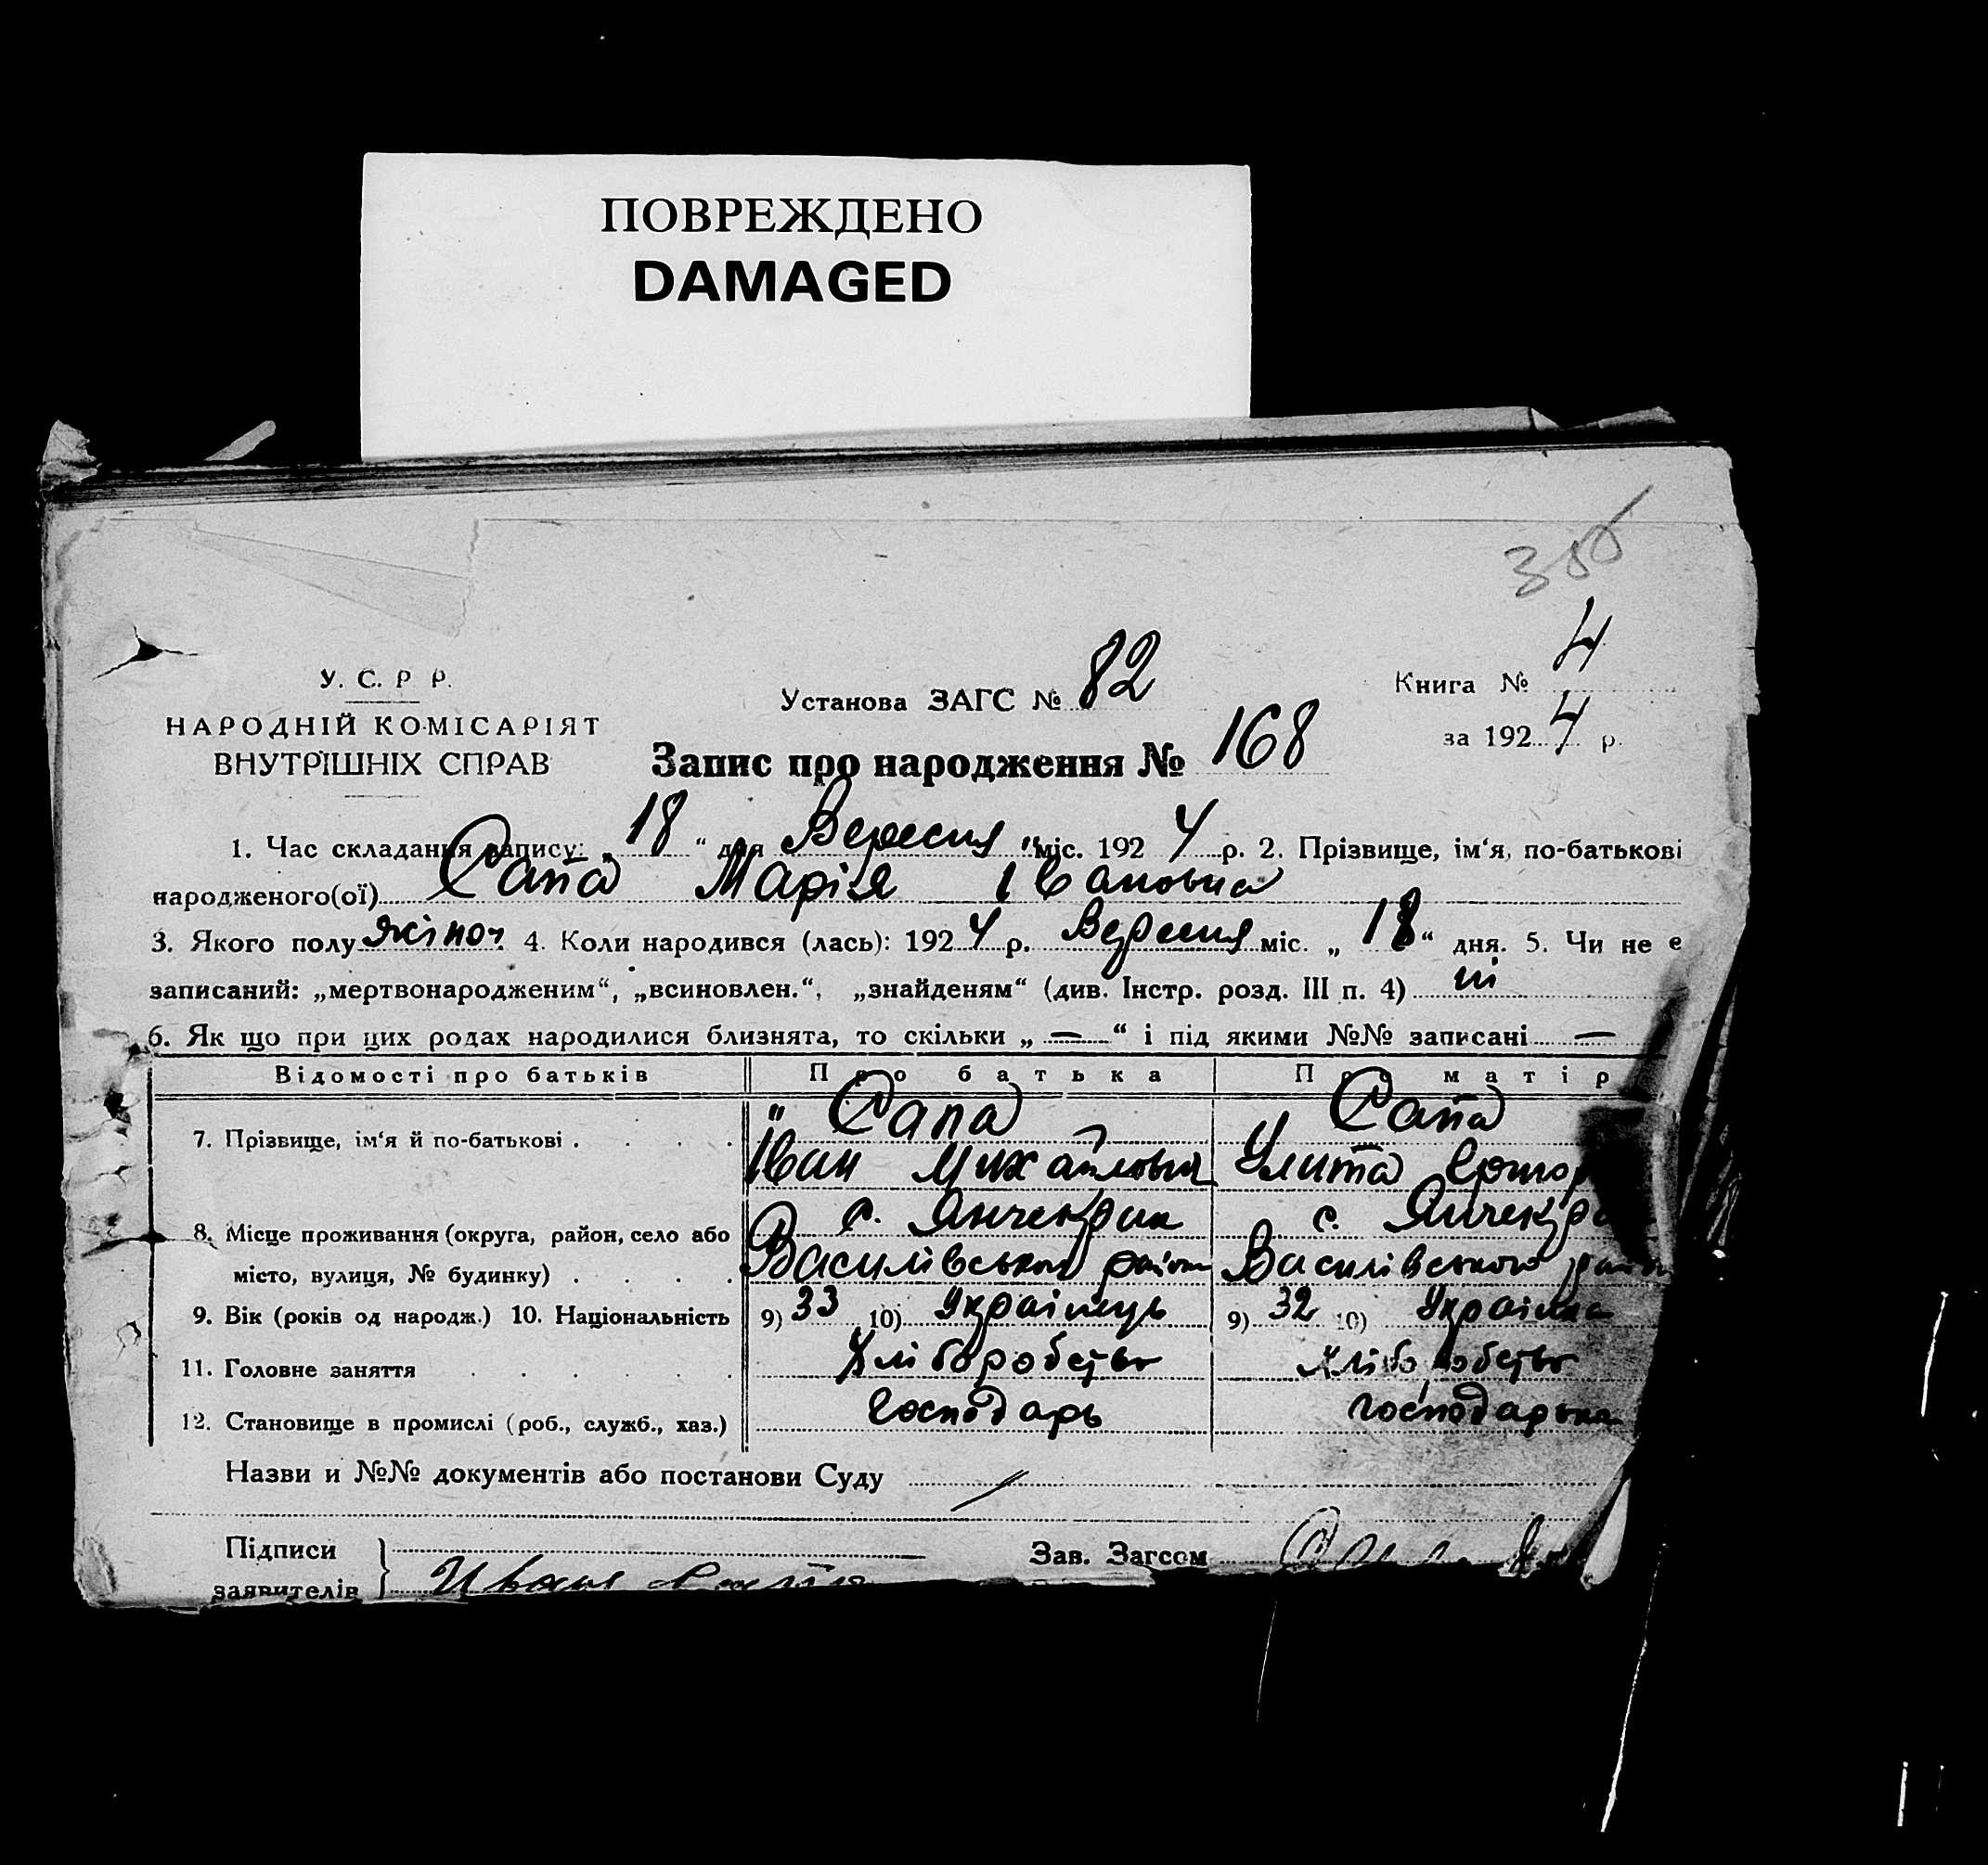 ПОВРЕЖДЕНО
DAMAGED
У. С. Р Р.
НАРОДНІЙ КОМІСАРІЯТ
ВНУТРІШНІХ СПРАВ
Установа ЗАГС № 82
Книга № 4
за 1924 р.
Запис про народження № 168
1. Час складання запису: „ 18 “ дня Вересня міс. 1924 р. 2. Прізвище, ім‘я, по-батькові
народженого(ої) Сапа Марія Івановна
3. Якого полу жіноч. 4. Коли народився (лась): 1924 р. Вересня міс. „ 18 “ дня. 5. Чи не є
записаний: „мертвонародженим“, „всиновлен.“, „знайденям“ (див. Інстр. розд. III п. 4) ні
6. Як що при цих родах народилися близнята, то скільки „ — “ і під якими №№ записані —
Відомості про батьків Про батька Про матір
7. Прізвище, ім‘я й по-батькові . Сапа Сапа
Іван Михайлович Улита
8. Місце проживання (округа, район, село або с. Янчекрак с. Янчекра
місто, вулиця, № будинку) Василівського району Василівського району
9. Вік (років од народж.) 10. Національність 9) 33 10) Українець 9) 32 10) Українка
11. Головне заняття Хліборобство Хліборобство
12. Становище в промислі (роб., служб., хаз.) Господарь Господарька
Назви и №№ документів або постанови Суду
Підписи
заявителів Иван Сапа
Зав. Загсом